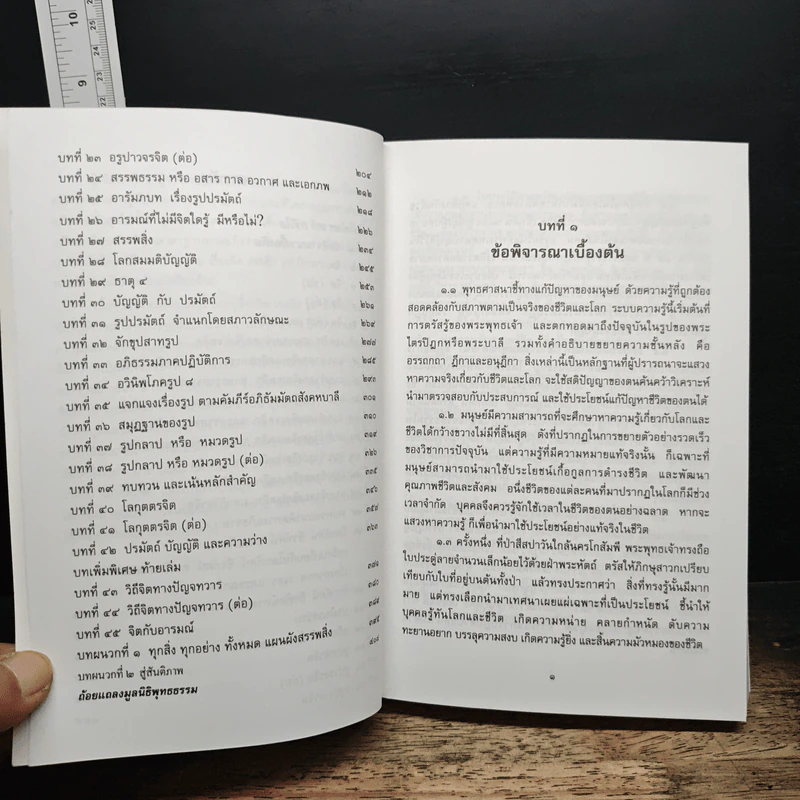 10
25
24
23
9
22
บทที่ ๒๓ อรูปาวจรจิต (ต่อ)
บทที่ ๒๔ สรรพธรรม หรือ อสาร กาล อวกาศ และเอกภพ ๒๐๔
บทที่ ๒๕ อารัมภบท เรื่องรูปปรมัตถ์ ๒๑๒
บทที่ ๒๖ อารมณ์ที่ไม่มีจิตใดรู้ มีหรือไม่? ๒๑๘
บทที่ ๒๗ สรรพสิ่ง ๒๒๖
บทที่ ๒๘ โลกสมมติบัญญัติ ๒๓๔
บทที่ ๒๙ ธาตุ ๔ ๒๔๕
บทที่ ๓๐ บัญญัติ กับ ปรมัตถ์ ๒๕๓
บทที่ ๓๑ รูปปรมัตถ์ จำแนกโดยสภาวลักษณะ ๒๖๑
บทที่ ๓๒ จักขุปสาทรูป ๒๖๙
บทที่ ๓๓ อภิธรรมภาคปฏิบัติการ ๒๗๗
บทที่ ๓๔ อวินิพโภครูป ๘ ๒๘๕
บทที่ ๓๕ แจกแจงเรื่องรูป ตามคัมภีร์อภิธัมมัตถสังคหบาลี ๒๙๓
บทที่ ๓๖ สมุฏฐานของรูป ๓๐๑
บทที่ ๓๗ รูปกลาป หรือ หมวดรูป ๓๑๐
บทที่ ๓๘ รูปกลาป หรือ หมวดรูป (ต่อ) ๓๑๙
บทที่ ๓๙ ทบทวน และเน้นหลักสำคัญ
บทที่ ๔๐ โลกุตตรจิต ๓๓๕
บทที่ ๔๑ โลกุตตรจิต (ต่อ)
บทที่ ๔๒ ปรมัตถ์ บัญญัติ และความว่าง
บทเพิ่มพิเศษ ท้ายเล่ม ๓๖๓
บทที่ ๔๓ วิถีจิตทางปัญจทวาร
บทที่ ๔๔ วิถีจิตทางปัญจทวาร (ต่อ)
บทที่ ๔๕ จิตกับอารมณ์
บทผนวกที่ ๑ ทุกสิ่ง ทุกอย่าง ทั้งหมด แผนผังสรรพสิ่ง
บทผนวกที่ ๒ สู่สันติภาพ
ถ้อยแถลงมูลนิธิพุทธธรรม
บทที่ ๑
ข้อพิจารณาเบื้องต้น
๑.๑ พุทธศาสนาชี้ทางแก้ปัญหาของมนุษย์ ด้วยความรู้ที่ถูกต้อง
สอดคล้องกับสภาพตามเป็นจริงของชีวิตและโลก ระบบความรู้นี้เริ่มต้นที่
การตรัสรู้ของพระพุทธเจ้า และตกทอดมาถึงปัจจุบันในรูปของพระ
ไตรปิฎกหรือพระบาลี รวมทั้งคำอธิบายขยายความชั้นหลัง คือ
อรรถกถา ฎีกาและอนุฎีกา สิ่งเหล่านี้เป็นหลักฐานที่ผู้ปรารถนาจะแสวง
หาความจริงเกี่ยวกับชีวิตและโลก จะใช้สติปัญญาของตนค้นคว้าวิเคราะห์
นำมาตรวจสอบกับประสบการณ์ และใช้ประโยชน์แก้ปัญหาชีวิตของตนได้
๑.๒ มนุษย์มีความสามารถที่จะศึกษาหาความรู้เกี่ยวกับโลกและ
ชีวิตได้กว้างขวางไม่มีที่สิ้นสุด ดังที่ปรากฏในการขยายตัวอย่างรวดเร็ว
ของวิชาการปัจจุบัน แต่ความรู้ที่มีความหมายแท้จริงนั้น ก็เฉพาะที่
มนุษย์สามารถนำมาใช้ประโยชน์เกื้อกูลการดำรงชีวิต และพัฒนา
คุณภาพชีวิตและสังคม อนึ่งชีวิตของแต่ละคนที่มาปรากฏในโลกก็มีช่วง
เวลาจำกัด บุคคลจึงควรรู้จักใช้เวลาในชีวิตของตนอย่างฉลาด หากจะ
แสวงหาความรู้ ก็เพื่อนำมาใช้ประโยชน์อย่างแท้จริงในชีวิต
๑.๓ ครั้งหนึ่ง ที่ป่าสีสปาวันใกล้นครโกสัมพี พระพุทธเจ้าทรงถือ
ใบประดู่ลายจำนวนเล็กน้อยไว้ด้วยฝ่าพระหัตถ์ ตรัสให้ภิกษุสาวกเปรียบ
เทียบกับใบที่อยู่บนต้นทั้งป่า แล้วทรงประกาศว่า สิ่งที่ทรงรู้นั้นมีมาก
มาย แต่ทรงเลือกนำมาเทศนาเผยแผ่เฉพาะที่เป็นประโยชน์ ชี้นำให้
บุคคลรู้ทันโลกและชีวิต เกิดความหน่าย คลายกำหนัด ดับความ
ทะยานอยาก บรรลุความสงบ เกิดความรู้ยิ่ง และสิ้นความมัวหมองของชีวิต
๑